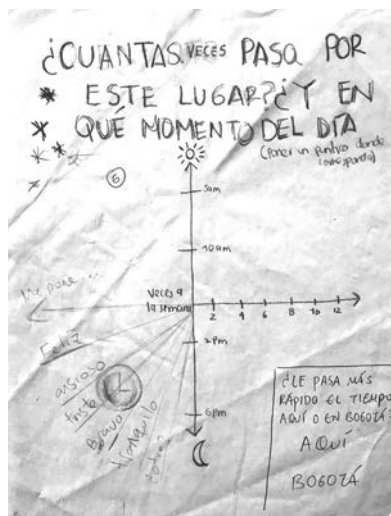 ¿CUANTAS VECES PASA POR
ESTE LUGAR? ¿Y EN
QUÉ MOMENTO DEL DÍA
(Poner un puntico donde
corresponda)
6
5am
10am
Me pone...
veces a
la semana
2 4 6 8 10 12
Feliz
2pm
ansioso
triste
Bravo
tranquilo
¿otro?
6pm
¿LE PASA MÁS
RÁPIDO EL TIEMPO
AQUÍ O EN BOGOTÁ?
AQUÍ
BOGOTÁ